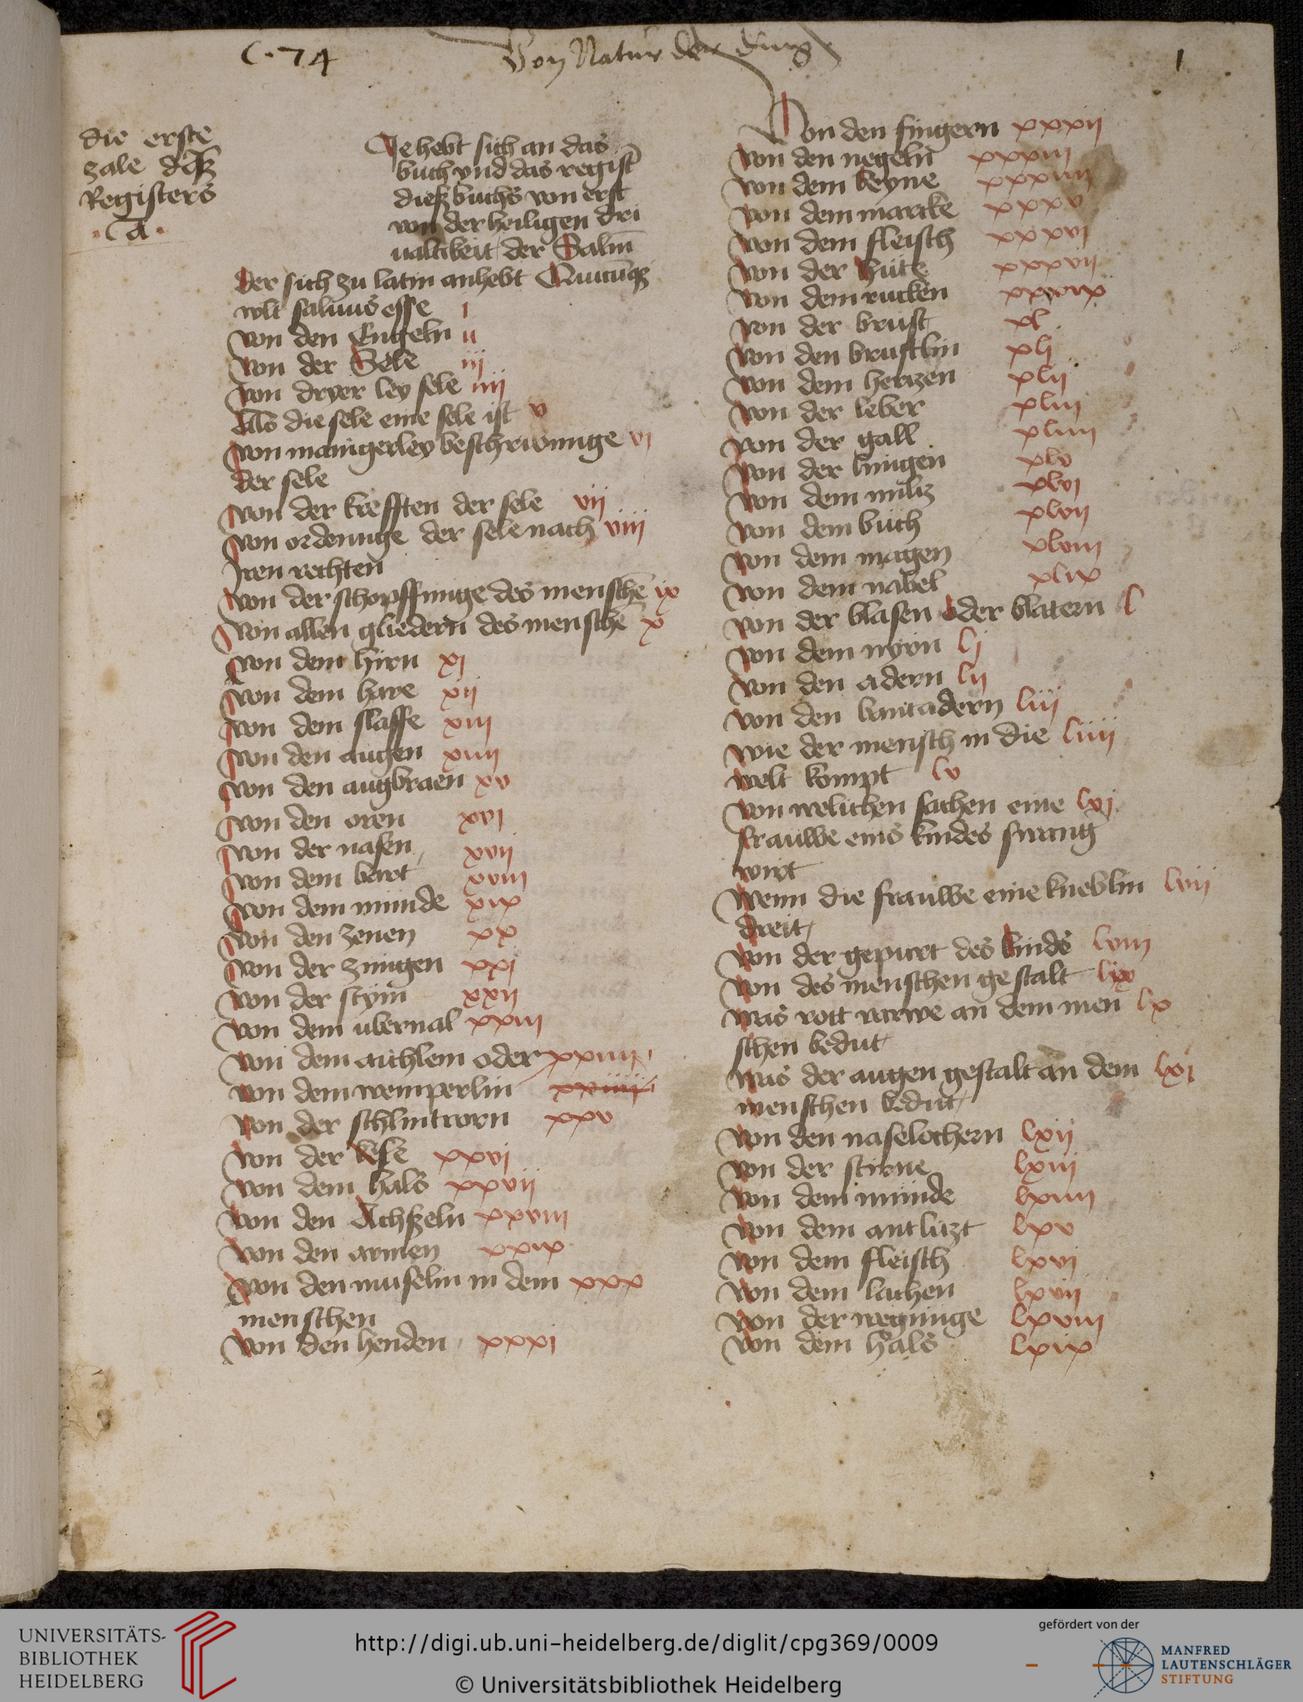 C. 74
Von Natur der ding
1
die erste
zale deß
Registers
.a.
Je hebt sich an das
buch vnd das regist
dieß buchs von erst
von der heiligen dri
ualtikeit der Salm
der sich zu latin anhebt Quicuq3
vlt saluus esse i
von den Engeln ii
von der Sele iii
von dryer ley sele iiii
Als die sele eine sele ist v
von manigerley beschriwunge vi
der sele
von der krefften der sele vii
von ordenunge der sele nach viii
Iren rechten
von der schopffunge des mensche ix
von allen gliedern des mensche x
von dem hirn xi
von dem hare xii
von dem slaffe xiii
von den augen xiiii
von den augbraen xv
von den oren xvi
von der nasen xvii
von dem bart xviii
von dem munde xix
von den zenen xx
von der zungen xxi
von der stym xxii
von dem ubernal xxiii
von dem aichlem oder xxiiii
von dem wemperlin
von der schlintrorn xxv
von der xxvi
von dem hals xxvii
von den Achßeln xxviii
von den armen xxix
von den muselin in dem xxx
menschen
von den henden xxxi
Von den fingern xxxii
von den negeln xxxiii
von dem beyne xxxiiii
von dem marcke xxxv
von dem fleisch xxxvi
von der hute xxxvii
von dem rucken xxxix
von der brust xl
von den brustlin xli
von dem hertzen xlii
von der leber xliii
von der gall xliiii
von der lungen xlv
von dem miltz xlvi
von dem buch xlvii
von dem magen xlviii
von dem nabel xlix
von der blasen oder blatern l
von dem nyrn li
von den adern lii
von den bantadern liii
wie der mensch in die liiii
welt kompt lv
von welichen sachen eine lvi
frauwe eins kindes swang
wirt
wenn die frauwe eine kneblin lvii
dreit
von der gepurt des kinds lviii
von des menschen gestalt lix
was rott varwe an dem men lx
schen bedut
was der augen gestalt an dem lxi
menschen bedut
von den naselochern lxii
von der stirne lxiii
von dem munde lxiiii
von dem antluzt lxv
von dem fleisch lxvi
von dem lachen lxvii
von der wegunge lxviii
von dem hals lxix
UNIVERSITÄTS-
BIBLIOTHEK
HEIDELBERG
http://digi.ub.uni-heidelberg.de/diglit/cpg369/0009
© Universitätsbibliothek Heidelberg
gefördert von der
MANFRED
LAUTENSCHLÄGER
STIFTUNG